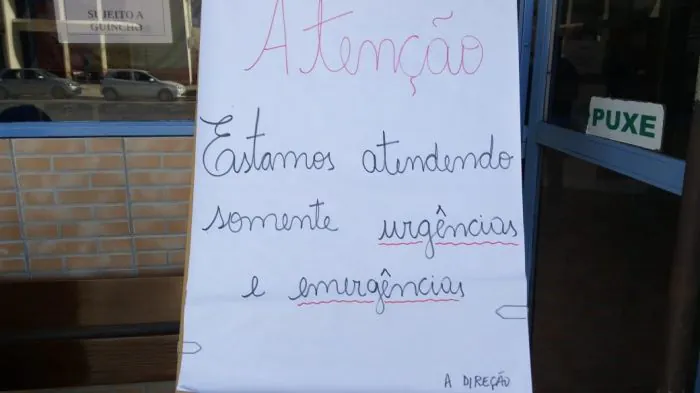 SUJEITO A
GUINCHO
Atenção
PUXE
Estamos atendendo
somente urgências
e emergências
A DIREÇÃO